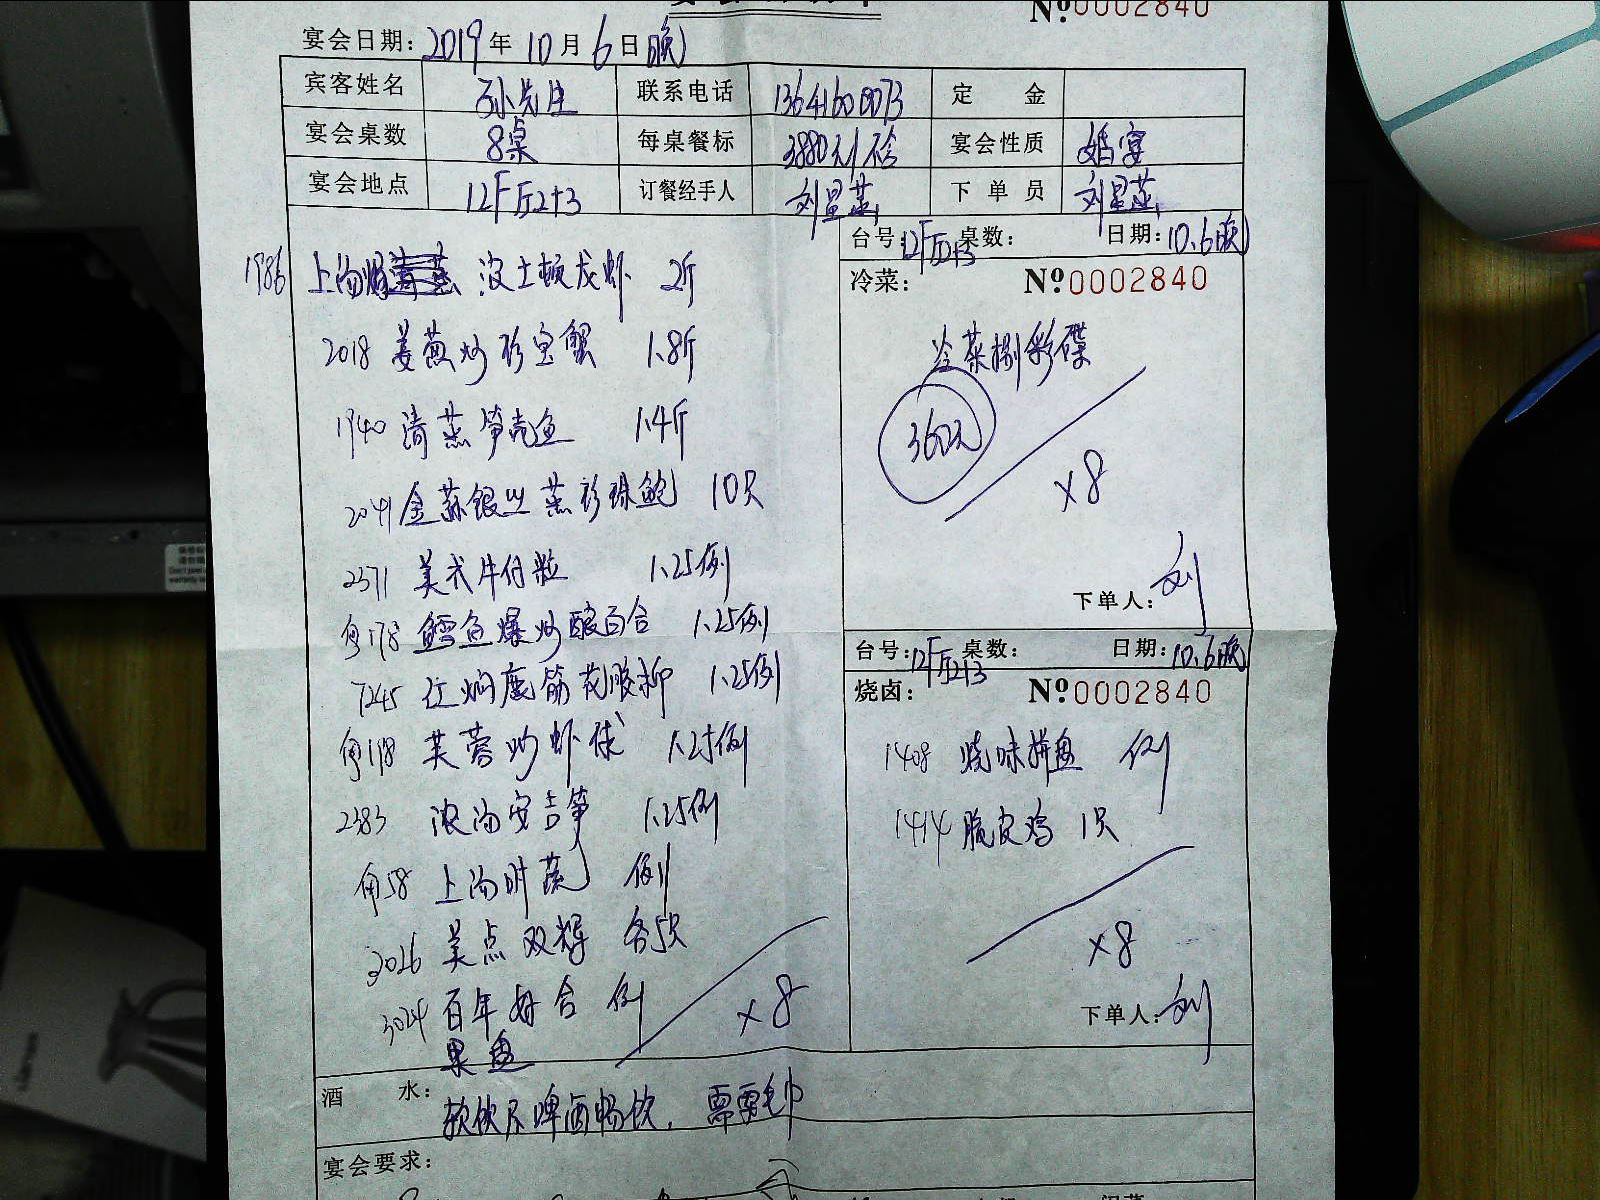 №0002840
宴会日期：2019年10月6日(晚)
宾客姓名 孙先生 联系电话 13641600073 定 金
宴会桌数 8桌 每桌餐标 3880元/ 宴会性质 婚宴
宴会地点 12F厅2+3 订餐经手人 刘 下单员 刘
台号：12F厅2+3 桌数： 日期：10.6(晚)
1986 上汤焗 波士顿龙虾 2斤
冷菜： №0002840
冷菜捌彩碟
2018 姜葱炒珍宝蟹 1.8斤
360元
1940 清蒸笋壳鱼 1.4斤
×8
2041 金蒜银丝蒸珍珠鲍 10只
2371 美式牛仔粒 1.25例
下单人：刘
角178 鳕鱼爆炒酸百合 1.25例
台号：12F厅2+3 桌数： 日期：10.6(晚)
7245 红焖鹿筋花胶柳 1.25例
烧卤： №0002840
角118 芙蓉炒虾球 1.25例
1408 烧味拼盘 例
2383 浓汤安吉笋 1.25例
1414 脆皮鸡 1只
角58 上汤时蔬 例
2026 美点双辉 各5只
×8
3024 百年好合 例
×8
下单人：刘
果盘
酒 水：
软饮及啤酒畅饮， 需要毛巾
宴会要求：